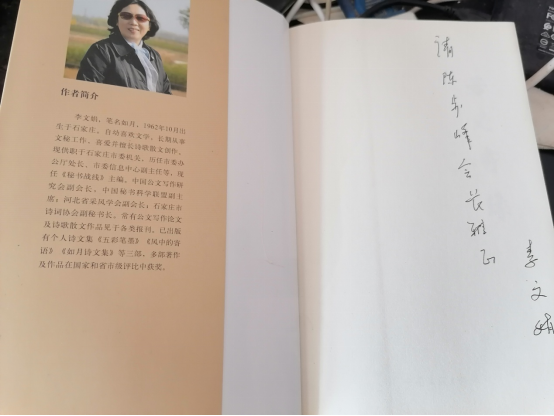 作者简介
李文娟，笔名如月，1962年10月出
生于石家庄，自幼喜欢文字，长期从事
文秘工作，喜爱并擅长诗歌散文创作。
现供职于石家庄市委机关，历任市委办
公厅处长、市委信息中心副主任等，现
任《秘书战线》主编，中国公文写作研
究会副会长，中国秘书科学联盟副主
席；河北省采风学会副会长；石家庄市
诗词协会副秘书长，常有公文写作论文
及诗歌散文作品见于各类报刊。已出版
有个人诗文集《五彩笔墨》《风中的寄
语》《如月诗文集》等三部，多部著作
及作品在国家和省市级评比中获奖。
请陈 会长雅正
李文娟